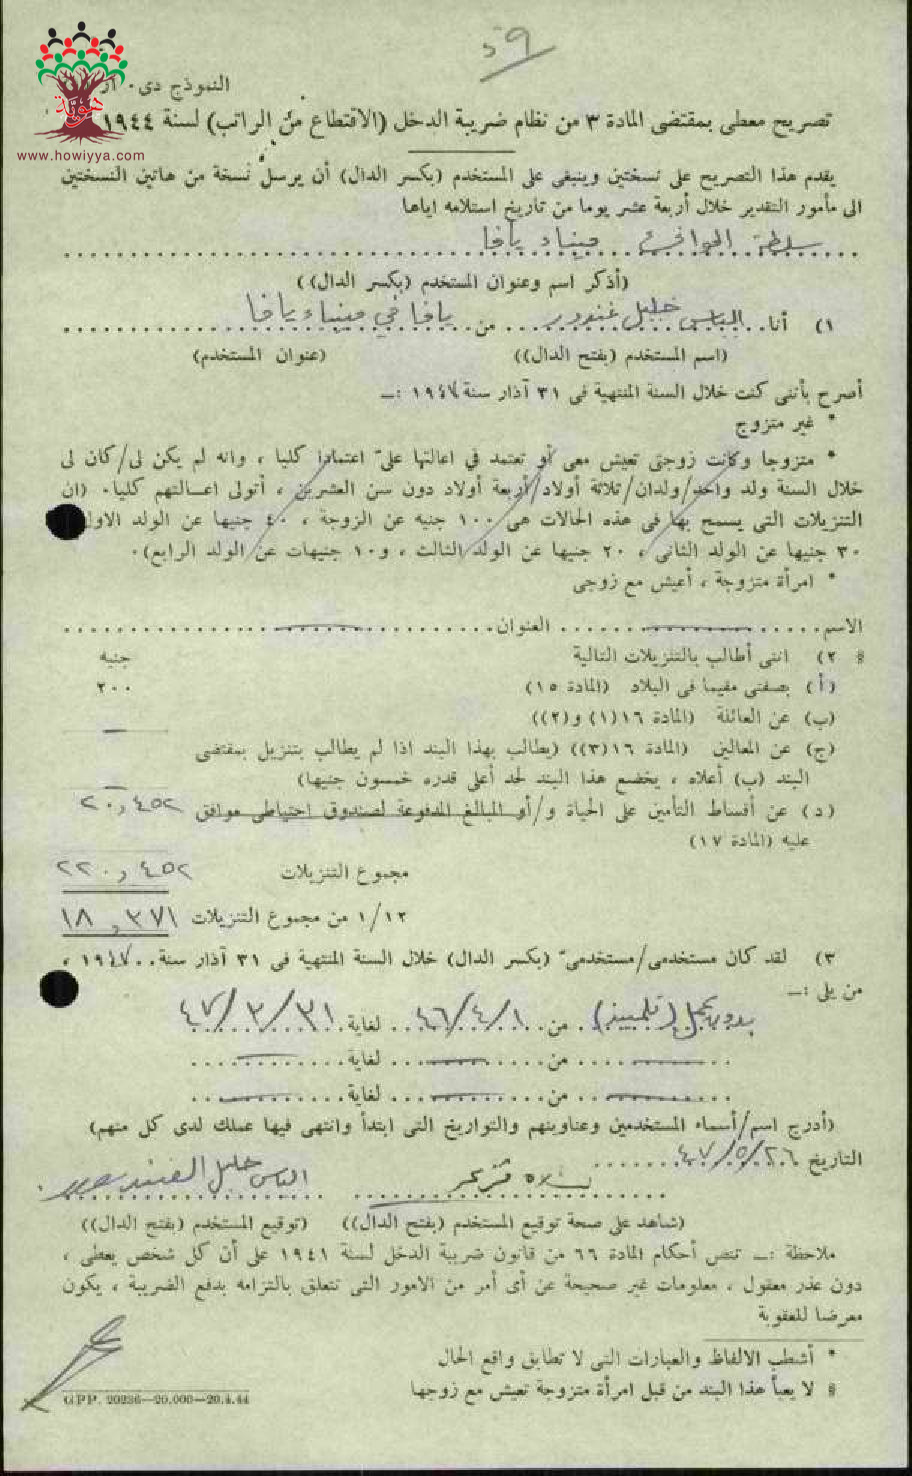 ٥٩
النموذج دى٠ ار
هوية
www.howiyya.com
تصريح معطى بمقتضى المادة ٣ من نظام ضريبة الدخل (الاقتطاع من الراتب) لسنة ١٩٤٤
يقدم هذا التصريح على نسختين وينبغى على المستخدم (بكسر الدال) أن يرسل نسخة من هاتين النسختين
الى مأمور التقدير خلال أربعة عشر يوما من تاريخ استلامه اياها
سلطة الموانئ ميناء يافا
(أذكر اسم وعنوان المستخدم (بكسر الدال))
١) أنا الياس خليل غندور من يافا في ميناء يافا
(اسم المستخدم (بفتح الدال)) (عنوان المستخدم)
أصرح بأننى كنت خلال السنة المنتهية فى ٣١ آذار سنة ١٩٤٧ :ـ
* غير متزوج
* متزوجا وكانت زوجتى تعيش معى أو تعتمد في اعالتها علىّ اعتمادا كليا ، وانه لم يكن لى/كان لى
خلال السنة ولد واحد/ولدان/ثلاثة أولاد/أربعة أولاد دون سن العشرين ، أتولى اعـالتهم كليا٠ (ان
التنزيلات التى يسمح بها فى هذه الحالات هى ١٠٠ جنيه عن الزوجة ، ٤٠ جنيها عن الولد الاول
٣٠ جنيها عن الولد الثانى ، ٢٠ جنيها عن الولد الثالث ، و١٠ جنيهات عن الولد الرابع)٠
* امرأة متزوجة ، أعيش مع زوجى
الاسم العنوان
§ ٢) اننى أطالب بالتنزيلات التالية جنيه
(أ) بصفتى مقيما فى البلاد (المادة ١٥) ٢٠٠
(ب) عن العائلة (المادة ١٦(١) و(٢)) —
(ج) عن المعالين (المادة ١٦(٣)) (يطالب بهذا البند اذا لم يطالب بتنزيل بمقتضى
البند (ب) أعلاه ، يخضع هذا البند لحد أعلى قدره خمسون جنيها) —
(د) عن أقساط التأمين على الحياة و/أو المبالغ المدفوعة لصندوق احتياطى موافق ٢٠,٤٥٢
عليه (المادة ١٧)
مجموع التنزيلات ٢٢٠,٤٥٢
١/١٢ من مجموع التنزيلات ١٨,٣٧١
٣) لقد كان مستخدمى/مستخدمىّ (بكسر الدال) خلال السنة المنتهية فى ٣١ آذار سنة ١٩٤٧ ،
من يلى :ـ
بدون عمل (تلميذ) من ٤٦/٤/١ لغاية ٤٧/٣/٣١
من لغاية
من لغاية
(أدرج اسم/أسماء المستخدمين وعناوينهم والتواريخ التى ابتدأ وانتهى فيها عملك لدى كل منهم)
التاريخ ٤٧/٥/٢٦
الياس خليل
(شاهد على صحة توقيع المستخدم (بفتح الدال)) (توقيع المستخدم (بفتح الدال))
ملاحظة :ـ تنص أحكام المادة ٦٦ من قانون ضريبة الدخل لسنة ١٩٤١ على أن كل شخص يعطى ،
دون عذر معقول ، معلومات غير صحيحة عن أى أمر من الامور التى تتعلق بالتزامه بدفع الضريبة ، يكون
معرضا للعقوبة
* أشطب الالفاظ والعبارات التى لا تطابق واقع الحال
§ لا يعبأ هذا البند من قبل امرأة متزوجة تعيش مع زوجها
GPP. 20236—20.000—20.4.44